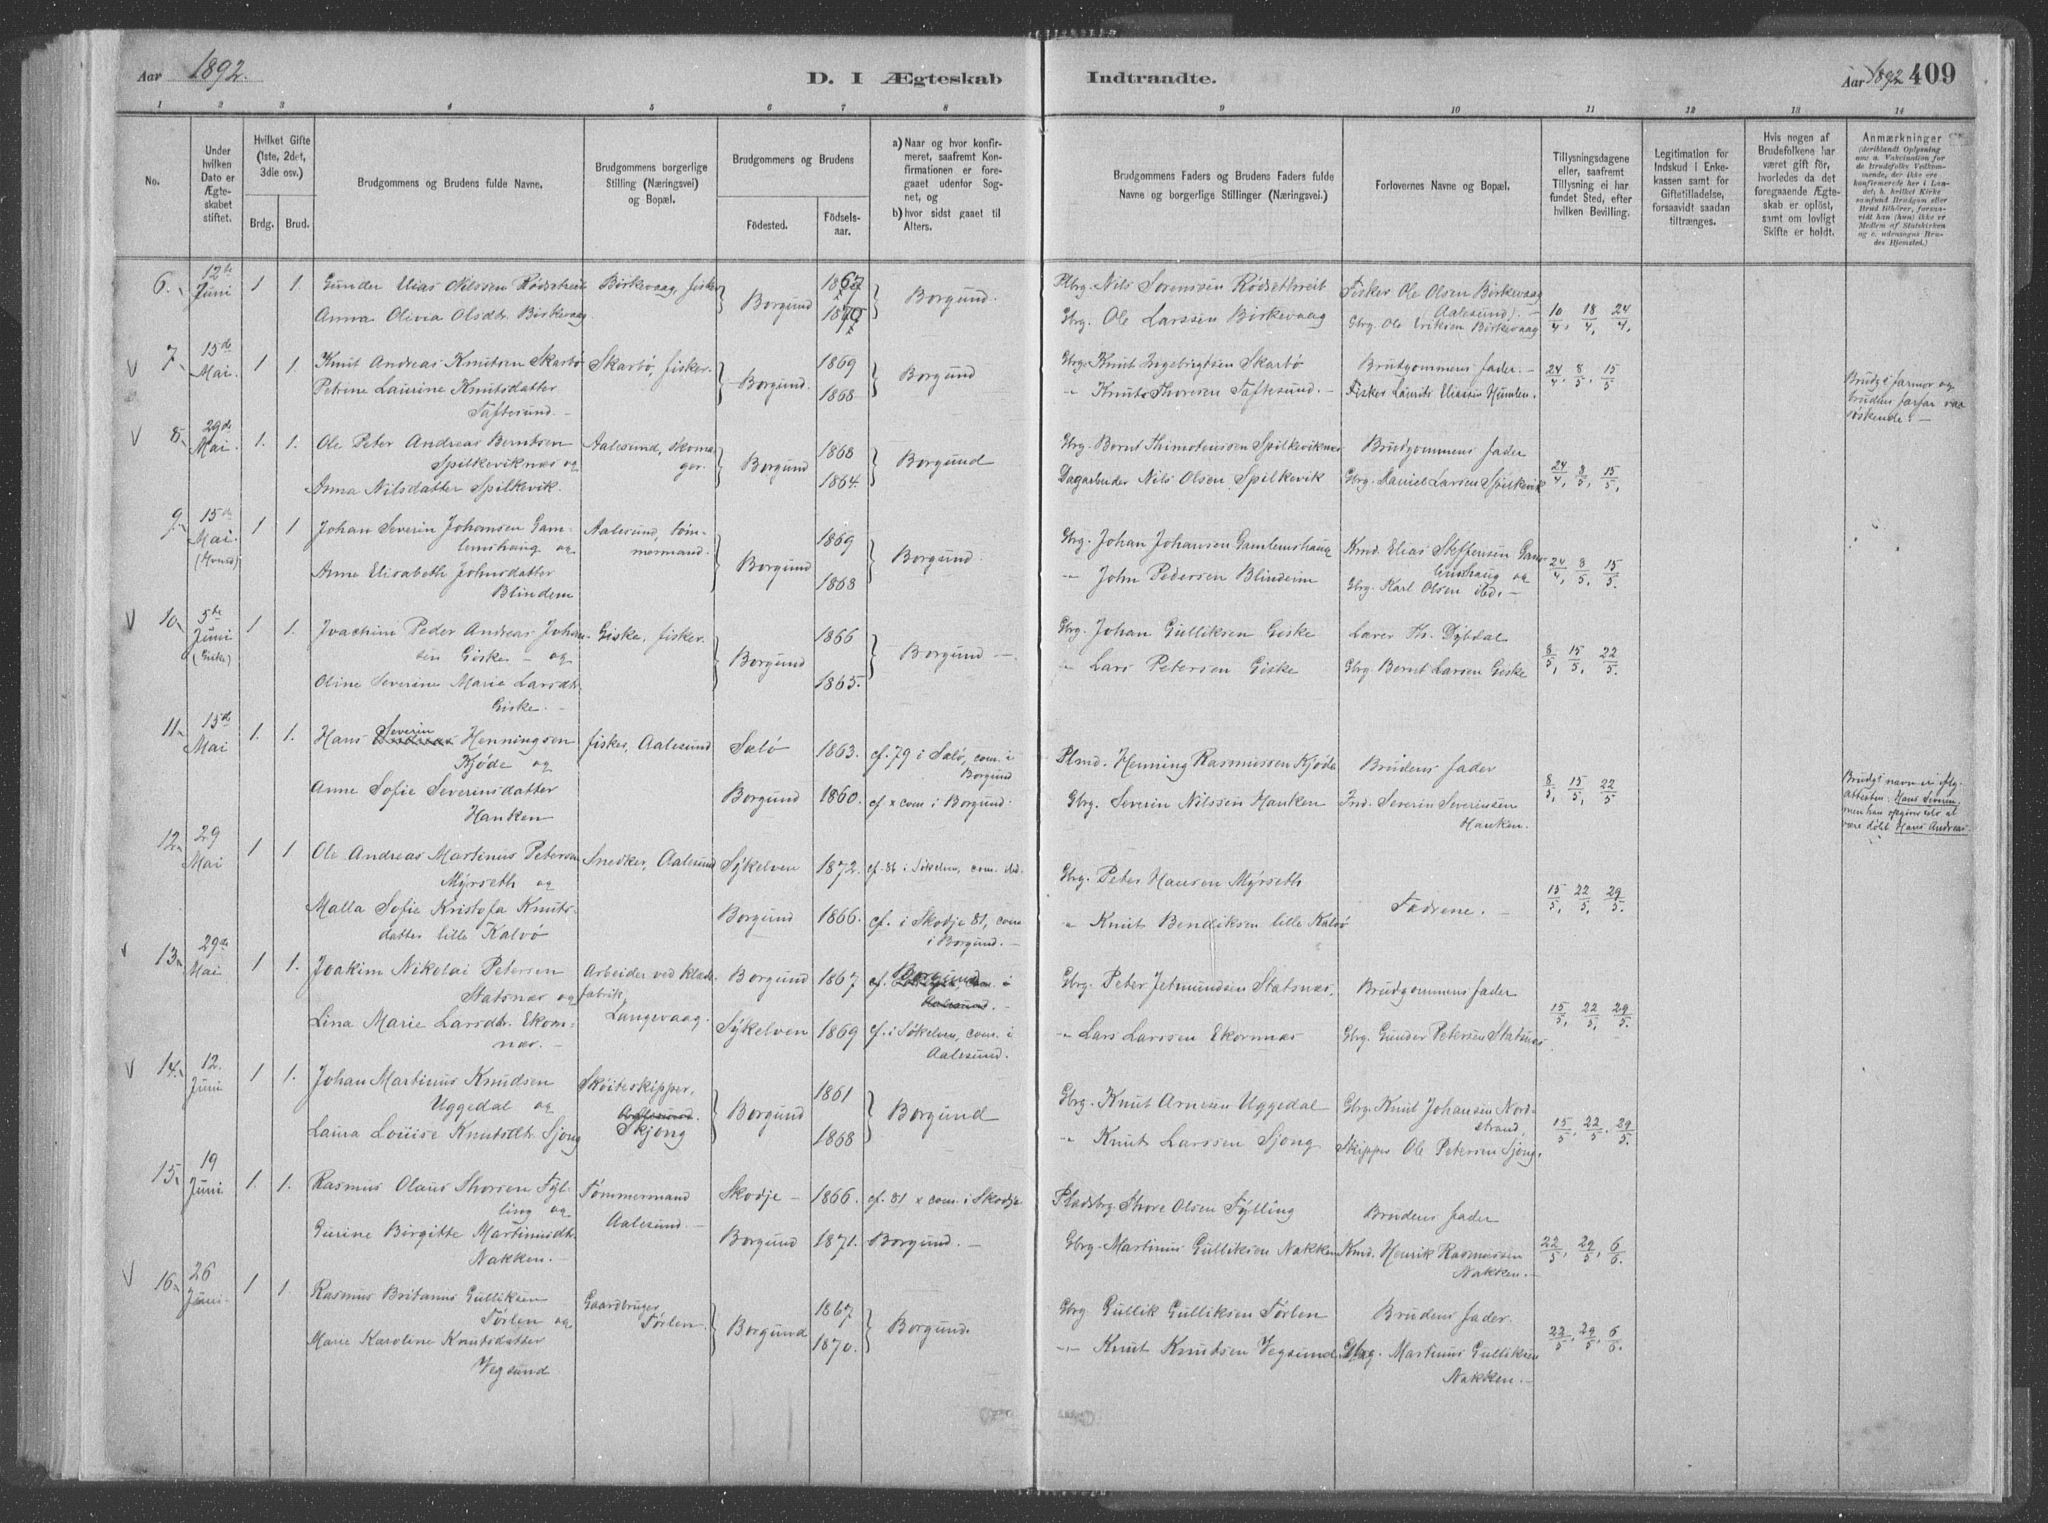 Aar 1892.
D. I Ægteskab
Indtraadte.
Aar 1892
409
1 2 3 4 5 6 7 8 9 10 11 12 13 14
No.
Under hvilken Dato er Ægteskabet stiftet.
Hvilket Gifte (1ste, 2det, 3die osv.)
Brdg. Brud.
Brudgommens og Brudens fulde Navne.
Brudgommens borgerlige Stilling (Næringsvei) og Bopæl.
Brudgommens og Brudens
Födested.
Födselsaar.
a) Naar og hvor konfirmeret, saafremt Konfirmationen er foregaaet udenfor Sognet, og
b) hvor sidst gaaet til Alters.
Brudgommens Faders og Brudens Faders fulde Navne og borgerlige Stillinger (Næringsvei.)
Forlovernes Navne og Bopæl.
Tillysningsdagene eller, saafremt Tillysning ei har fundet Sted, efter hvilken Bevilling.
Legitimation for Indskud i Enkekassen samt for Giftetilladelse, forsaavidt saadan tiltrænges.
Hvis nogen af Brudefolkene har været gift för, hvorledes da det foregaaende Ægteskab er oplöst, samt om lovligt Skifte er holdt.
Anmærkninger
6. 12te Juni 1 1. Gunder Elias Nilssen Rødsethreit Birkevaag, fisker Borgund 1867 Borgund. Plbrg. Nils Sørensen Rødsethreit Fisker Ole Olsen Birkevaag
Anna Olivia Olsdtr. Birkevaag 1870 Gbrg. Ole Larssen Birkevaag (Aalesund). Gbrg. Ole Eriksen Birkevaag 10/4, 18/4, 24/4.
V 7. 15de Mai. 1 1. Knut Andreas Knutsen Skarbø Skarbø, fisker. Borgund. 1869 Borgund Gbrg. Knut Ingebrigtsen Skarbø Brudgommens fader. 24/4, 8/5, 15/5
Petrine Laurine Knutsdatter Taftesund. 1868 " Knut Thoresen Taftesund. Fisker Laurits Eliassen Humlen. Brudg's farmor og brudens farfar var søskende.
V 8. 29de Mai. 1. 1. Ole Peter Andreas Berntsen Spilkeviknæs og Aalesund, skomager. Borgund 1868 Borgund Gbrg. Bernt Thimoteussen Spilkeviknæs Brudgommens fader
Anna Nilsdatter Spilkevik. 1864. Dagarbeider Nils Olsen Spilkevik Gbrg. Daniel Larsen Spilkevik 24/4, 8/5, 15/5.
9. 15de Mai. 1 1 Johan Severin Johansen Gamlemshaug og Aalesund, tømmermand. Borgund 1869 Borgund. Gbrg. Johan Johansen Gamlemshaug Kmd. Elias Steffensen Gamlemshaug og
Anne Elisabeth Johnsdatter Blindem 1868 " John Pedersen Blindeim Gbrg. Karl Olsen ibd. 24/4, 8/5, 15/5.
V 10. 5te Juni (Giske) 1 1. Joachim Peder Andreas Johansen Giske og Giske, fisker. Borgund 1866 Borgund Gbrg. Johan Gulliksen Giske Lærer Th. Dybdal
Oline Severine Marie Larsdtr. Giske. 1865. " Lars Petersen Giske Gbrg Bernt Larsen Giske 8/5, 15/5, 22/5.
11. 15de Mai 1. 1. Hans Severin Henningsen Kjøde og fisker, Aalesund Selø 1863. cf. 79 i Selø, com. i Borgund Plmd. Henning Rasmussen Kjøde Brudens fader
Anne Sofie Severinsdatter Hanken Borgund 1860. cf x com i Borgund. Gbrg. Severin Nilssen Hanken Ind. Severin Severinsen Hanken. 8/5, 15/5, 22/5
Brudg's navn er iflg. attesten Hans Severin, men han opgives selv at være døbt Hans Andreas.
12. 29 Mai 1 1. Ole Andreas Martinus Petersen Myrseth og Snedker, Aalesund Sykelven 1872. cf. 86 i Søkelven, com. ibd. Gbrg. Peter Hansen Myrseth Fædrene.
Malla Sofie Kristofa Knutsdatter lille Kalvø Borgund 1866. cf. i Skodje 81, com i Borgund. " Knut Bendiksen lille Kalvø 15/5, 22/5, 29/5.
V 13. 29de Mai 1 1. Joakim Nikolai Petersen Statsnæs og Arbeider ved klædefabrik, Langevaag. Borgund 1867 cf. Borgund Gbrg. Peter Jetmundsen Statsnæs, Brudgommens fader
Lina Marie Larsdtr. Ekornnæs. Sykelven 1869 cf. i Søkelven, com. i Aalesund. " Lars Larssen Ekornnæs Gbrg. Gunder Petersen Statsnæs 15/5, 22/5, 29/5.
V 14. 12. Juni 1 1. Johan Martinus Knudsen Uggedal og Skøiteskipper, Aalesund. Skjong Borgund 1861 Borgund Gbrg. Knut Arnesen Uggedal Gbrg. Knut Johansen Nordstrand,
Laura Louise Knutsdtr. Sjong 1868 " Knut Larssen Sjong Skipper Ole Petersen Sjong. 15/5, 22/5, 29/5.
15. 19 Juni 1. 1. Rasmus Olaus Thorsen Fylling og Tømmermand Aalesund. Skodje 1866. cf. 81 x com. i Skodje Pladsbrg. Thore Olsen Fylling Brudens fader
Gurine Birgitte Martinusdtr. Nakken. Borgund 1871. Borgund. Gbrg. Martinus Gulliksen Nakken Kmd. Henrik Rasmussen Nakken. 22/5, 29/5, 6/6.
V 16. 26 Juni 1 1. Rasmus Britanus Gulliksen Tørlen og Gaardbruger, Tørlen. Borgund 1867 Borgund. Gbrg Gullik Gulliksen Tørlen Brudens fader.
Marie Karoline Knutsdatter Vegsund 1870. " Knut Knudsen Vegsund Gbrg. Martinus Gulliksen Nakken. 22/5, 29/5, 6/6.